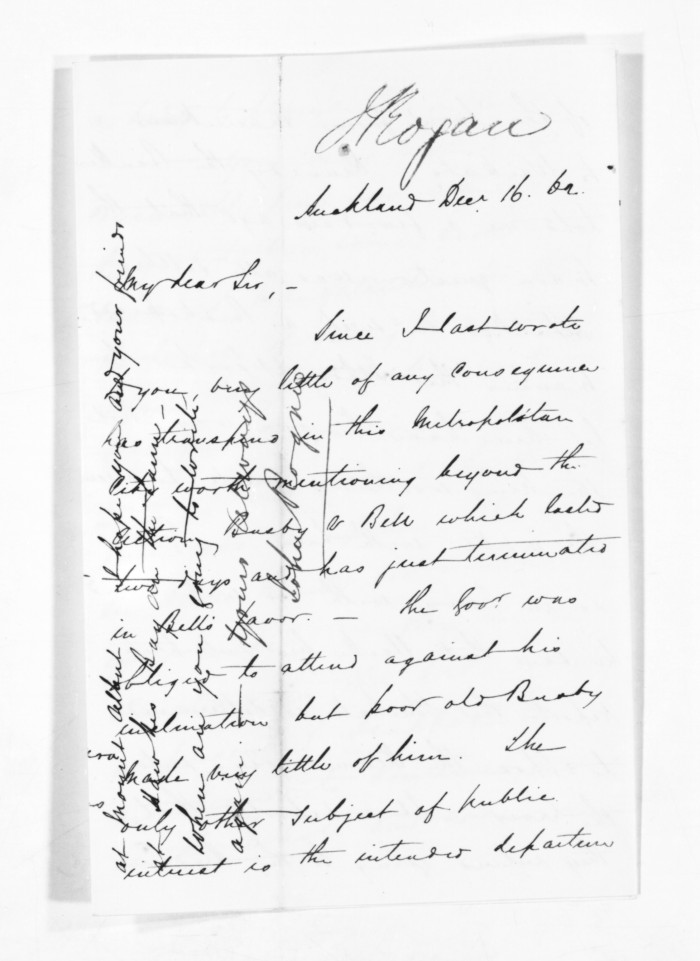 J Rogan
Auckland Decr 16. 62.
My dear Sir, -
Since I last wrote
to you very little of any consequence
has transpired in this Metropolitan
City worth mentioning beyond the
action Busby v Bell which lasted
two days and has just terminated
in Bell's favor. - The Govr. was
obliged to attend against his
inclination but poor old Busby
made very little of him. The
only other subject of public
interest is the intended departure
I hope you and your friends
at Mount Albert
at Hawkes Bay
when are you going to
again - Yours always
John Rogan